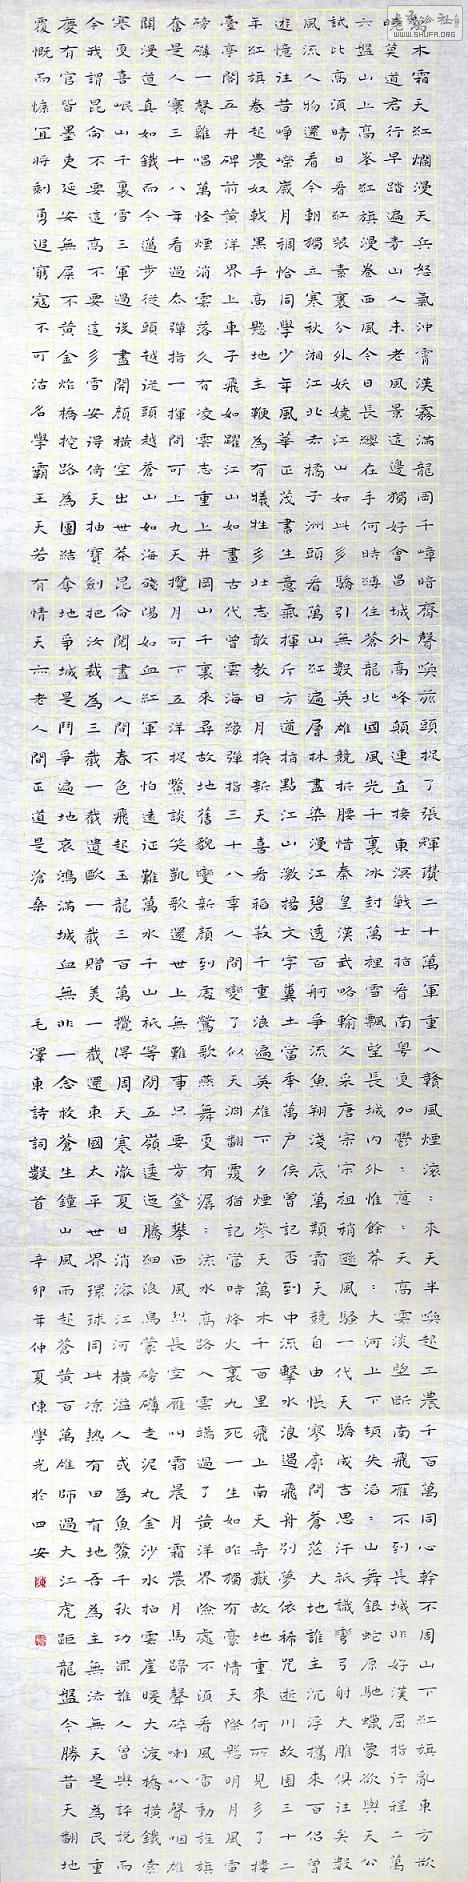 萬木霜天紅爛漫天兵怒氣沖霄漢霧滿龍岡千嶂暗齊聲喚前頭捉了張輝瓚二十萬軍重入贛風煙滾:來天半喚起工農千百萬同心幹不周山下紅旗亂東方欲
曉莫道君行早踏遍青山人未老風景這邊獨好會昌城外高峰顛連直接東溟戰士指看南粵更加鬱:蔥:天高雲淡望斷南飛雁不到長城非好漢屈指行程二萬
六盤山上高峯紅旗漫卷西風今日長纓在手何時縛住蒼龍北國風光千裏冰封萬裡雪飄望長城內外惟餘莽:大河上下頓失滔:山舞銀蛇原馳蠟象欲與天公
試比高須晴日看紅裝素裹分外妖嬈江山如此多驕引無數英雄競折腰惜秦皇漢武略輸文采唐宗宋祖稍遜風騷一代天驕成吉思汗祇識彎弓射大雕俱往矣數
風流人物還看今朝獨立寒秋湘江北去橘子洲頭看萬山紅遍層林盡染漫江碧透百舸爭流魚翔淺底萬類霜天競自由悵寥廓問蒼茫大地誰主沉浮攜來百侶曾
遊憶往昔崢嶸歲月稠恰同學少年風華正茂書生意氣揮斥方遒指點江山激揚文字糞土當年萬户侯曾記否到中流擊水浪遏飛舟別夢依稀咒逝川故園三十二
年紅旗卷起農奴戟黑手高懸地主鞭為有犧牲多壯志敢教日月換新天喜看稻菽千重浪遍英雄下夕煙參天萬木千百里飛上南天奇嶽故地重來何所見多了樓
臺亭閣五井碑前黃洋界上車子飛如躍江山如畫古代曾雲海綠彈指三十八年人間變了似天淵翻覆猶記當時烽火裏九死一生如昨獨有豪情天際懸明月風雷
磅礴一聲雞唱萬怪煙消雲落久有凌雲志重上井岡山千裏來尋故地舊貌變新顏到處鶯歌燕舞更有潺:流水高路入雲端過了黃洋界險處不須看風雷動旌旗
奮是人寰三十八年看過去彈指一揮間可上九天攬月可下五洋捉鱉談笑凱歌還世上無難事只要肯登攀西風烈長空雁叫霜晨月霜晨月馬蹄聲碎喇叭聲咽雄
關漫道真如鐵而今邁步從頭越從頭越蒼山如海殘陽如血紅軍不怕遠征難萬水千山祇等閑五嶺逶迤騰細浪烏蒙磅礴走泥丸金沙水拍雲崖暖大渡橋橫鐵索
寒更喜岷山千裏雪三軍過後盡開顏橫空出世莽昆侖閱盡人間春色飛起玉龍三百萬攪得周天寒澈夏日消溶江河橫溢人或為魚鱉千秋功罪誰人曾與評說而
今我謂昆侖不要這高不要這多雪安得倚天抽寶劍把汝裁為三截一截遺歐一截贈美一截還東國太平世界環球同此凉熱有田有地吾為主無法無天是為民重
慶有官皆墨吏延安無屎不黃金炸橋挖路為團結奪地爭城是鬥爭遍地哀鴻滿城血無非一念救蒼生鐘山風雨起蒼黃百萬雄師過大江虎踞龍盤今勝昔天翻地
覆慨而慷宜將剩勇追窮寇不可沽名學霸王天若有情天亦老人間正道是滄桑 毛澤東詩詞數首 辛卯年仲夏陳學光於四安
WWW.SHUFA.ORG